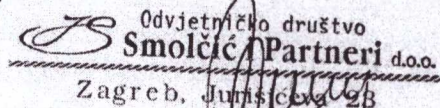 Odvjetničko društvo
Smolčić & Partneri d.o.o.
Zagreb, Jurišićeva 23